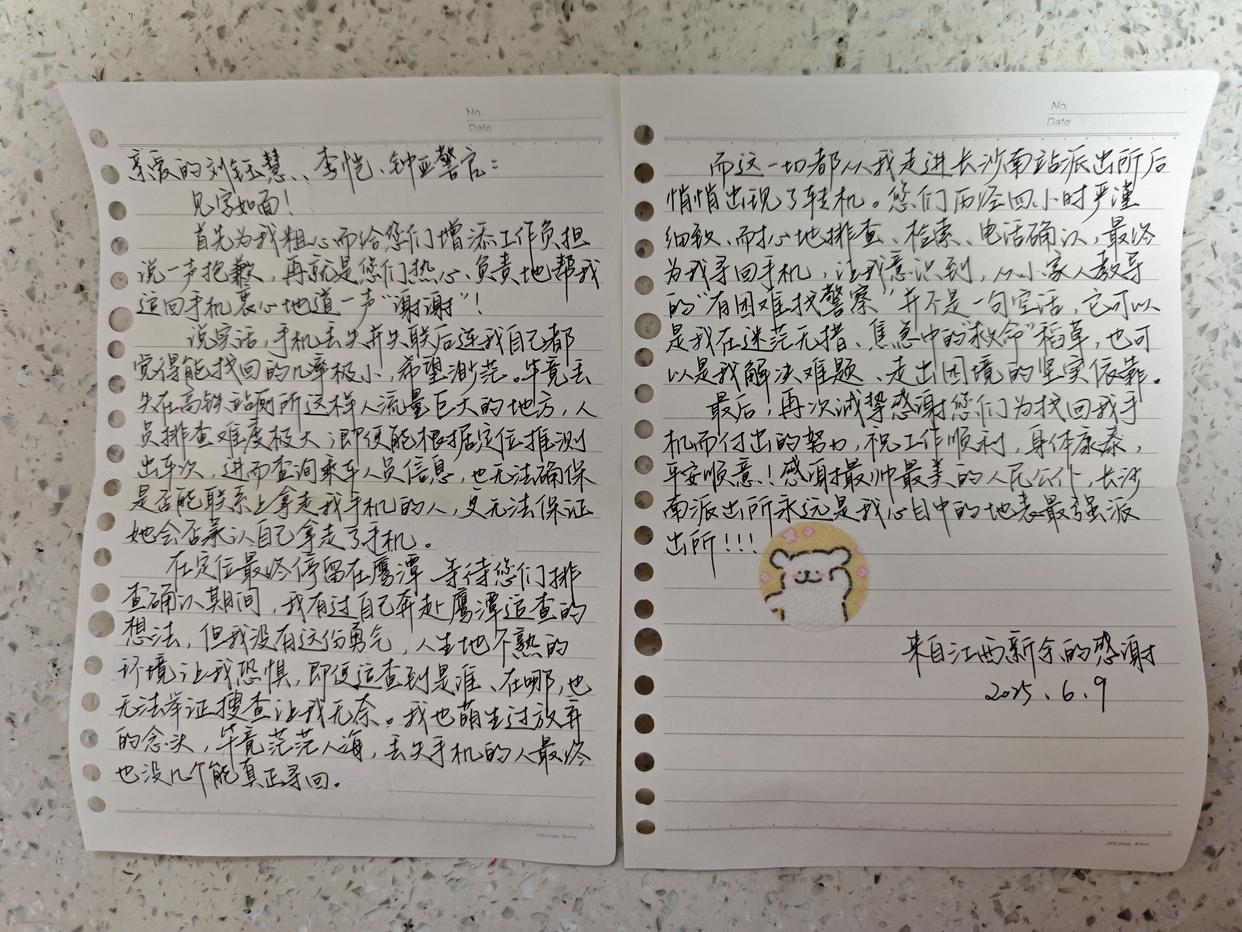 No.
Date
亲爱的刘钰慧、李恺、钟亚警官：
见字如面！
首先为我粗心而给您们增添工作负担
说一声抱歉，再就是您们热心、负责地帮我
追回手机衷心地道一声“谢谢”！
说实话，手机丢失并失联后连我自己都
觉得能找回的几率极小，希望渺茫。毕竟丢
失在高铁站厕所这样人流量巨大的地方，人
员排查难度极大；即便能根据定位推测
出车次，进而查询乘车人员信息，也无法确保
是否能联系上拿走我手机的人，更无法保证
她会否承认自己拿走了手机。
在定位最终停留在鹰潭、等待您们排
查确认期间，我有过自己奔赴鹰潭追查的
想法，但我没有这份勇气，人生地不熟的
环境让我恐惧，即便追查到是谁、在哪，也
无法举证搜查让我无奈。我也萌生过放弃
的念头，毕竟茫茫人海，丢失手机的人最终
也没几个能真正寻回。
No.
Date
而这一切都从我走进长沙南站派出所后
悄悄出现了转机。您们历经四小时严谨
细致、耐心地排查、检索、电话确认，最终
为我寻回手机，让我意识到，从小家人教导
的“有困难找警察”并不是一句空话，它可以
是我在迷茫无措、焦急中的“救命”稻草，也可
以是我解决难题、走出困境的坚实依靠。
最后，再次诚挚感谢您们为找回我手
机而付出的努力，祝工作顺利，身体康泰，
平安顺意！感谢最帅最美的人民公仆，长沙
南派出所永远是我心目中的地表最强派
出所！！！
来自江西新余的感谢
2025.6.9